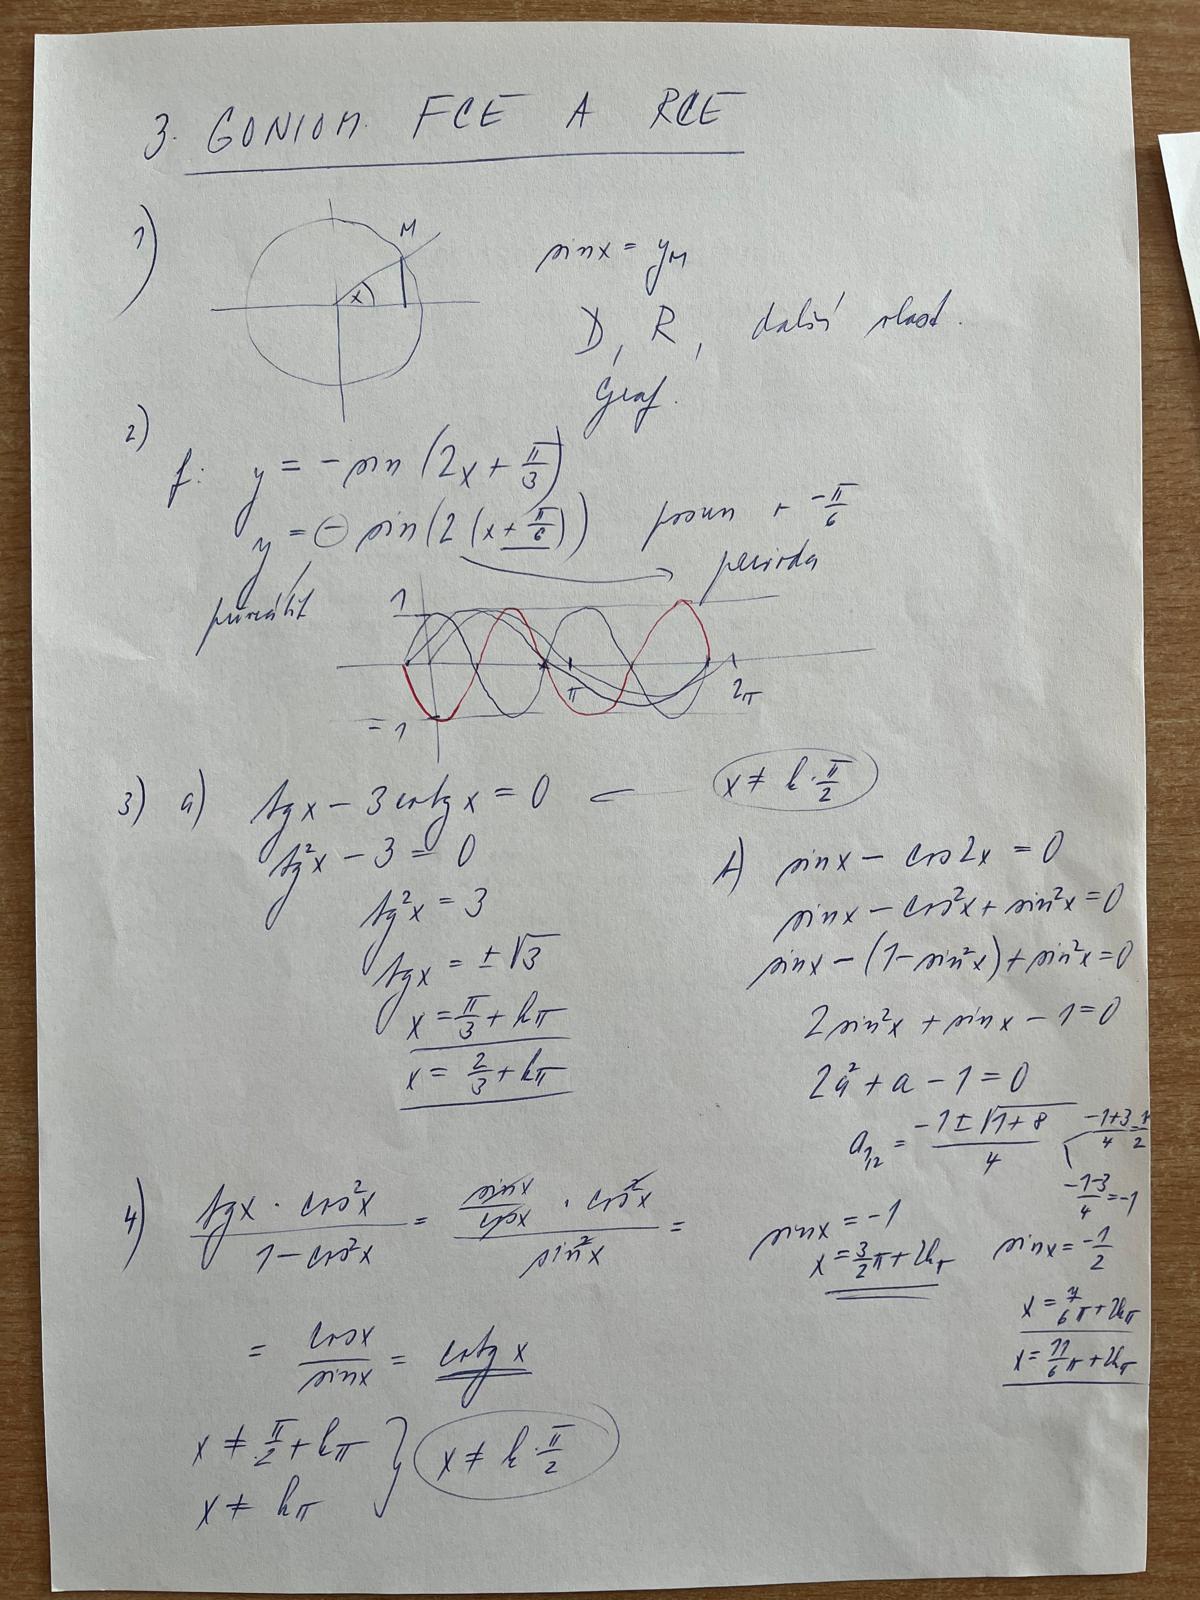 3. GONIOM. FCE A RCE
1)
M
x
sinx = yM
D, R, další vlast.
Graf.
2)
f: y = -sin (2x + π/3)
y = - sin (2 (x + π/6)) posun o -π/6
perioda
1
π
2π
-1
3) a) tgx - 3 cotg x = 0 x ≠ k·π/2
tg²x - 3 = 0
tg²x = 3
tgx = ±√3
x = π/3 + kπ
x = 2/3 + kπ
b) sinx - cos2x = 0
sinx - cos²x + sin²x = 0
sinx - (1 - sin²x) + sin²x = 0
2sin²x + sinx - 1 = 0
2a² + a - 1 = 0
a1,2 = (-1 ± √1+8)/4
(-1+3)/4 = 1/2
(-1-3)/4 = -1
sinx = -1
x = 3/2 π + 2kπ
sinx = -1/2
x = 7/6 π + 2kπ
x = 11/6 π + 2kπ
4) (tgx · cos²x)/(1 - cos²x) = (sinx/cosx · cos²x)/sin²x =
= cosx/sinx = cotg x
x ≠ π/2 + kπ
x ≠ kπ
x ≠ k·π/2